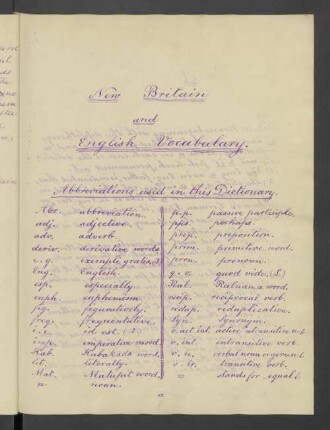 New Britain
and
English Vocabulary.
Abbreviations used in this Dictionary.
Abr. abbreviation.
adj. adjective.
adv. adverb
deriv. derivative words
e.g. exempli gratia,
Eng. English.
esp. especially
euph. euphemism.
fig. figuratively.
freq. frequentative.
i.e. id est.
imp. imperative mood.
Kab. Kabakada word.
lit. literally.
Mat. Matupit word.
n. noun.
p.p. passive participle
perhaps
prep. preposition.
prim. primitive word.
pron. pronoun.
q.v. quod vide,
Ral. Raluana word.
recip. reciprocal verb.
redup. reduplicative.
Syn. Synonym.
v. act. int. active intransitive v.
v. int. intransitive verb.
v. n. verbal noun or gerund
v. tr. transitive verb.
= Stands for equal